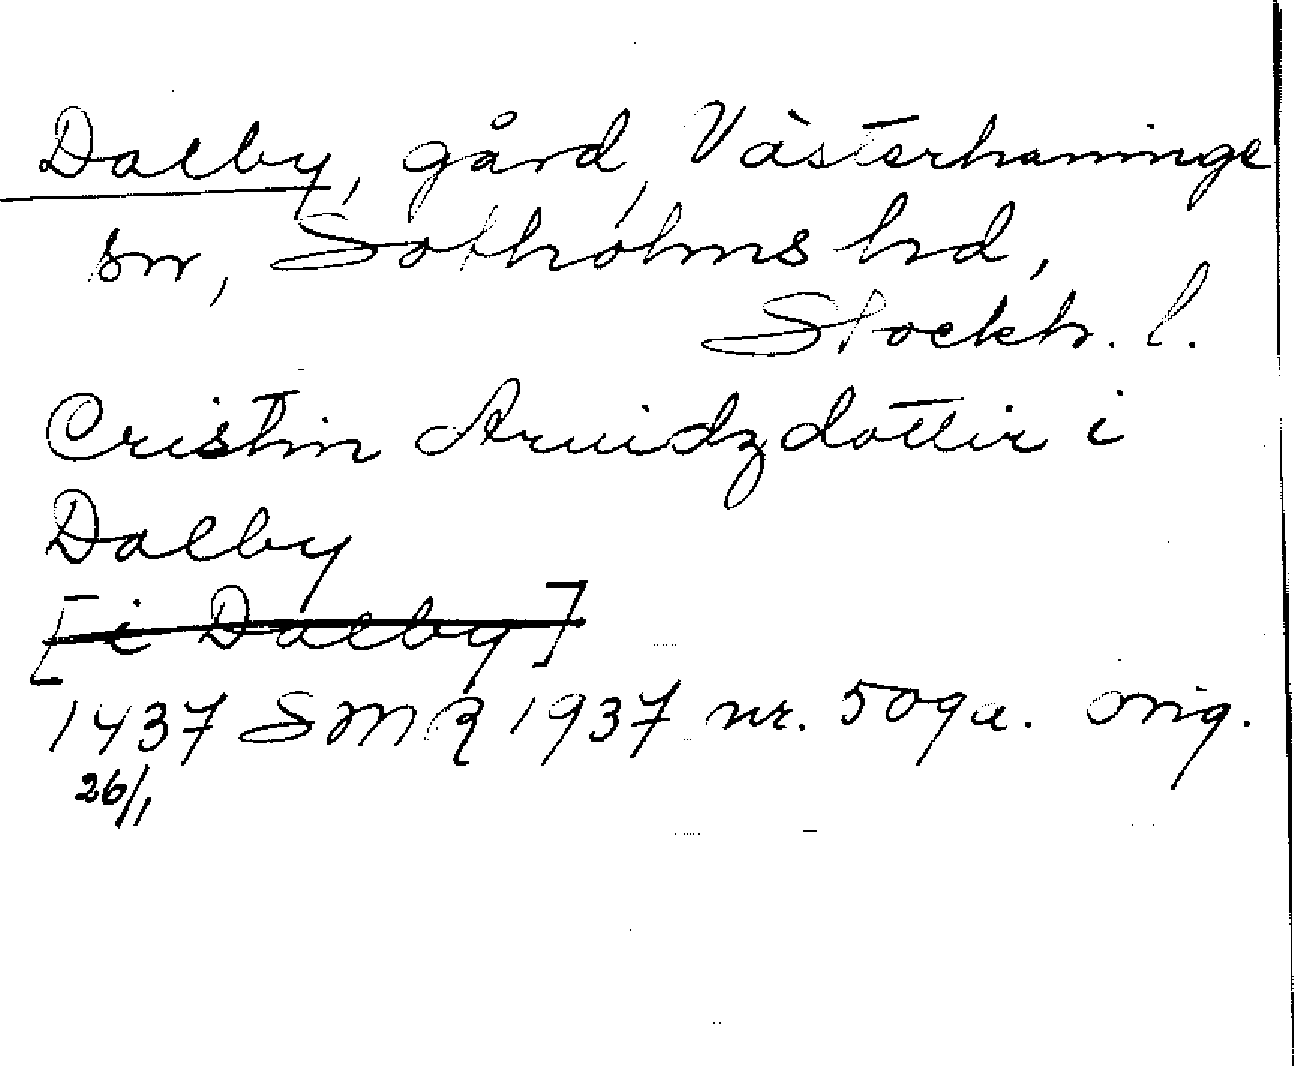 Dalby, gård, Västerhaninge
sn, Sotholms hd,
Stockh. l.
Cristin Aruidzdottir i
Dalby
[i Dalby]
1437 SMR 1937 nr. 509a. orig.
26/1